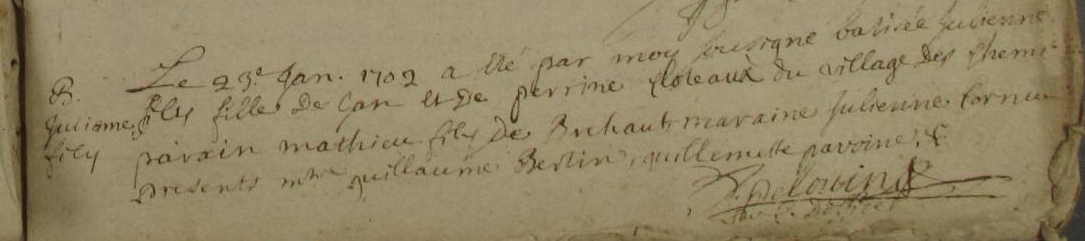 B.
Julienne
fily
Le 23e Jan. 1702 a été par moy sousigné batisée Julienne
fily fille de Jan et de perrine Loteaux du village des
parain mathieu fily de Brehaut maraine Julienne Cornu
presents mtre guillaume Berlin, guillemette pavoine, &